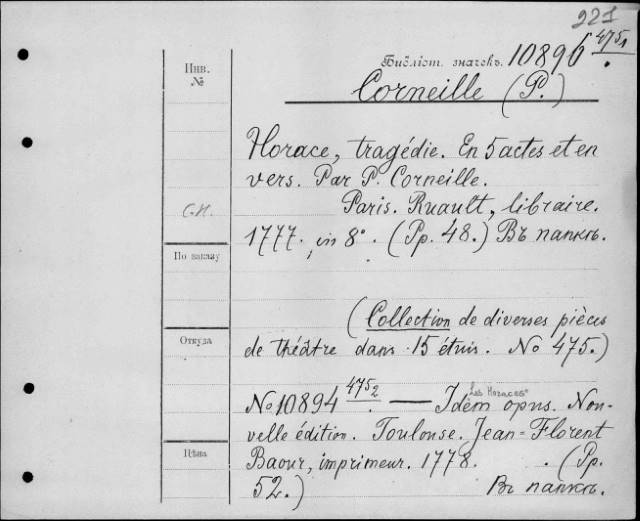 221
Инв.
№
Библіот. значекъ. 10896 475/1.
Corneille (P.)
Horace, tragédie. En 5 actes et en
vers. Par P. Corneille.
С.Н.
Paris. Ruault, libraire.
1777. in 8°. (Pp. 48.) Въ папкѣ.
По заказу
(Collection de diverses pièces
Откуда
de théâtre dans 15 étuis. No 475.)
Les Horaces
No 10894 475/2. — Idem opus. Nou-
velle édition. Toulouse. Jean-Florent
Цѣна
Baour, imprimeur. 1778. (Pp.
52.) Въ папкѣ.